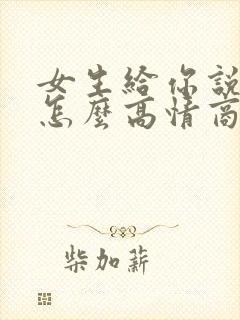 女生給你說
怎麼高情商
柴加薪